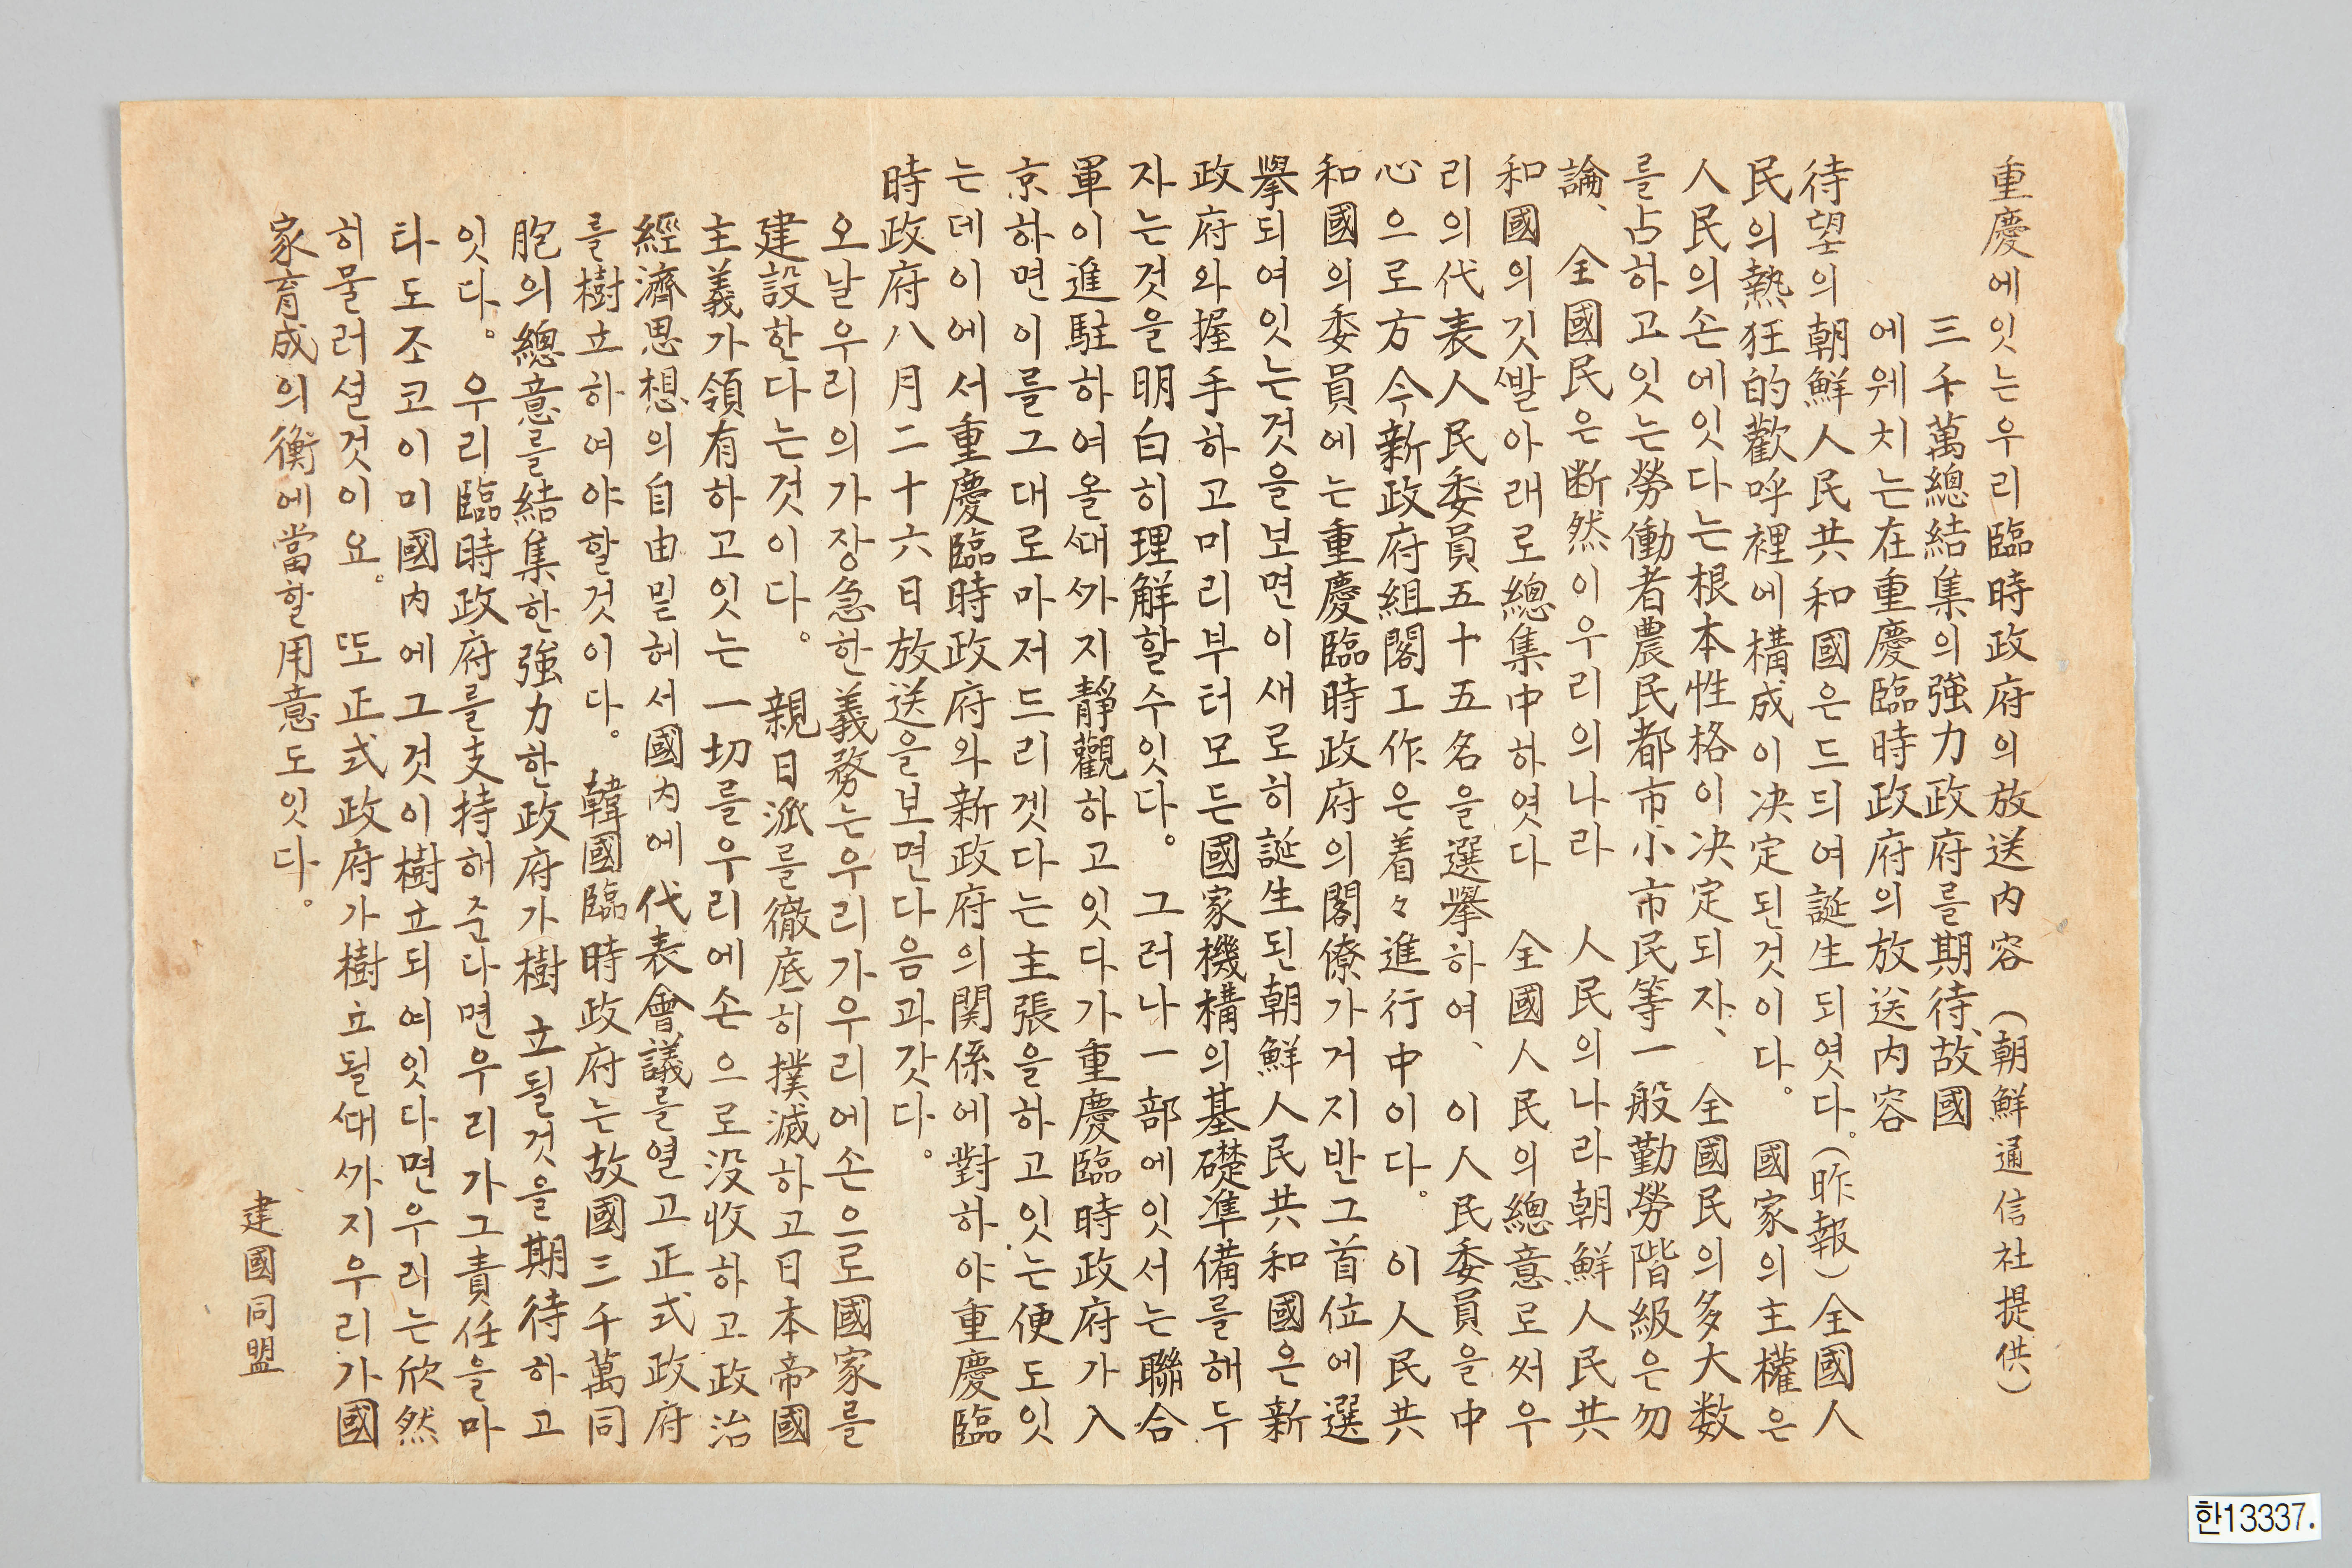 重慶에잇는우리臨時政府의放送內容(朝鮮通信社提供)
三千萬總結集의強力政府를期待、故國
에웨치는在重慶臨時政府의放送內容
待望의朝鮮人民共和國은드듸여誕生되엿다。(昨報)全國人
民의熱狂的歡呼裡에構成이決定된것이다。 國家의主權은
人民의손에잇다는根本性格이决定되자、 全國民의多大数
를占하고잇는勞働者農民都市小市民等一般勤勞階級은勿
論、 全國民은断然이우리의나라 人民의나라朝鮮人民共
和國의깃ᄲᅡᆯ아래로總集中하엿다 全國人民의總意로써우
리의代表人民委員五十五名을選擧하여、 이人民委員을中
心으로方今新政府組閣工作은着々進行中이다。 이人民共
和國의委員에는重慶臨時政府의閣僚가거지반그首位에選
擧되여잇는것을보면이새로히誕生된朝鮮人民共和國은新
政府와握手하고미리부터모든國家機構의基礎準備를해두
자는것을明白히理解할수잇다。 그러나一部에잇서는聯合
軍이進駐하여올ᄯᅢᄭᅡ지靜觀하고잇다가重慶臨時政府가入
京하면이를그대로마저드리겟다는主張을하고잇는便도잇
는데이에서重慶臨時政府와新政府의関係에對하야重慶臨
時政府八月二十六日放送을보면다음과갓다。
오날우리의가장急한義務는우리가우리에손으로國家를
建設한다는것이다。 親日派를徹底히撲滅하고日本帝國
主義가領有하고잇는一切를우리에손으로没收하고政治
經濟思想의自由밀헤서國內에代表會議를열고正式政府
를樹立하여야할것이다。 韓國臨時政府는故國三千萬同
胞의總意를結集한強力한政府가樹立될것을期待하고
잇다。 우리臨時政府를支持해준다면우리가그責任을마
타도조코이미國內에그것이樹立되여잇다면우리는欣然
히물러설것이요。 ᄯᅩ正式政府가樹立될ᄯᅢᄭᅡ지우리가國
家育成의衡에當할用意도잇다。
建國同盟
한13337.